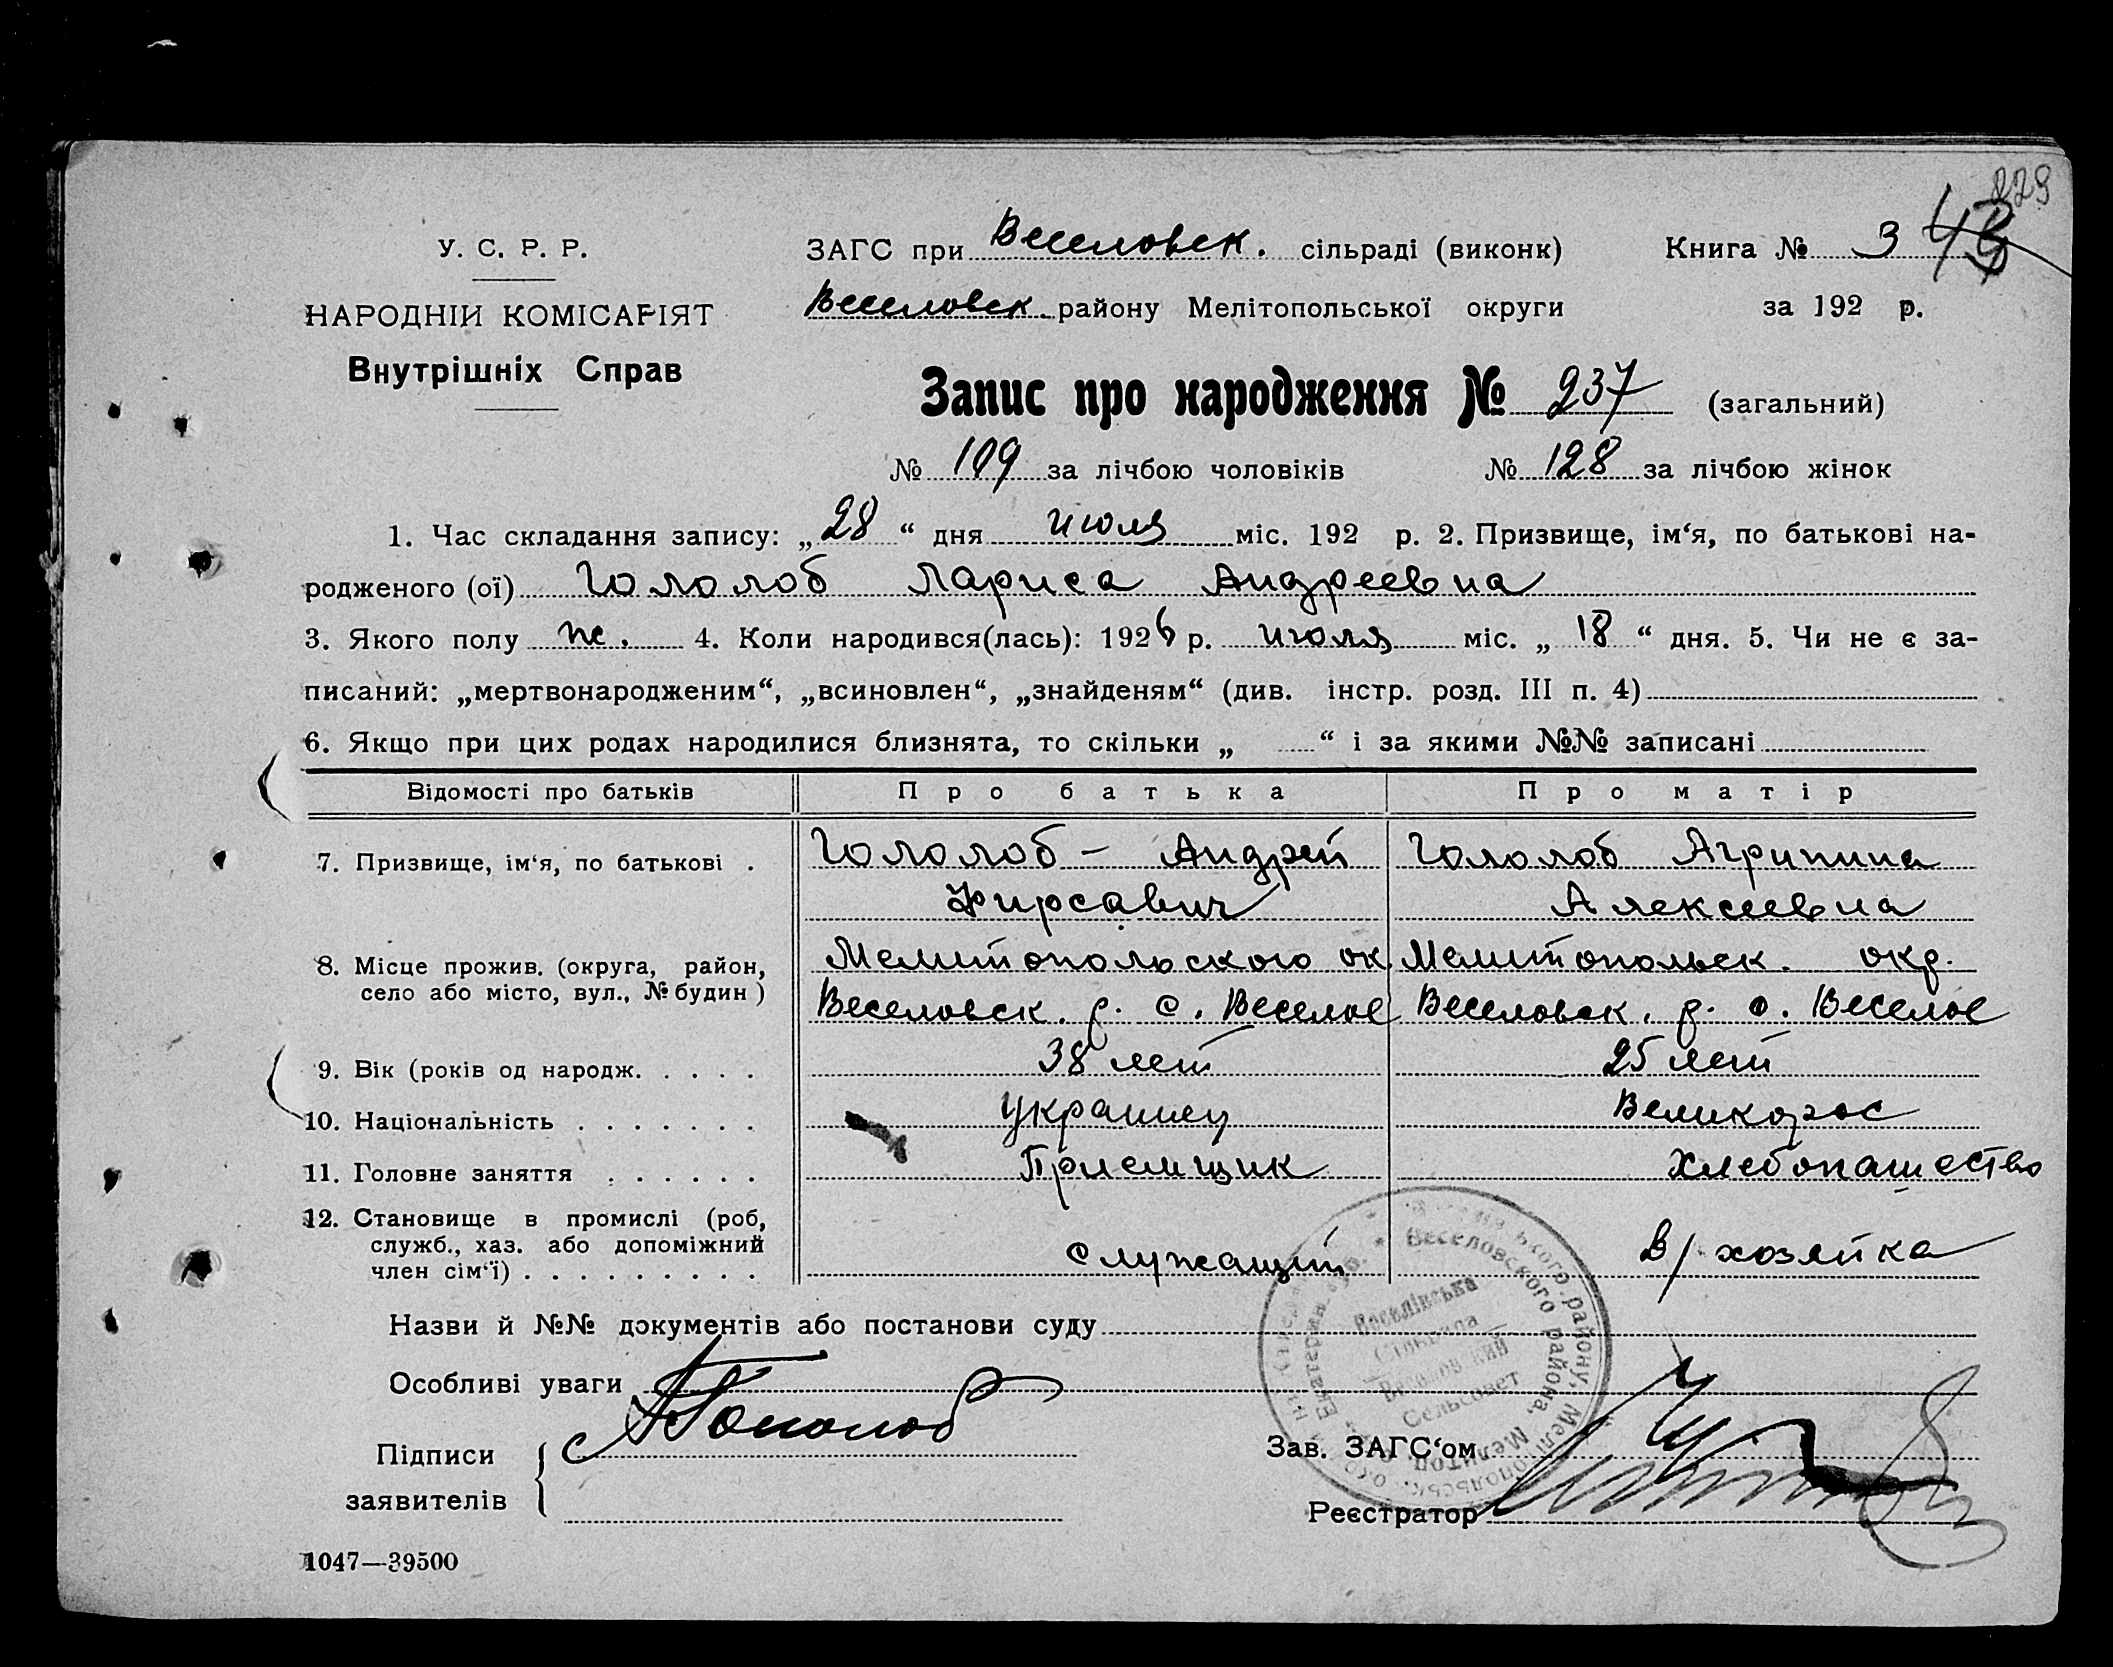 229
У. С. Р. Р.
ЗАГС при Веселовск. сільраді (виконк)
Книга № 3
НАРОДНІЙ КОМІСАРІЯТ
Веселовск. району Мелітопольської округи
за 192 р.
Внутрішніх Справ
Запис про народження № 237 (загальний)
№ 109 за лічбою чоловіків № 128 за лічбою жінок
1. Час складання запису: „28“ дня июля міс. 192 р. 2. Призвище, ім‘я, по батькові на-
родженого (ої) Гололоб Лариса Андреевна
3. Якого полу ж. 4. Коли народився(лась): 1926 р. июля міс. „18“ дня. 5. Чи не є за-
писаний: „мертвонародженим“, „всиновлен“, „знайденям“ (див. інстр. розд. III п. 4)
6. Якщо при цих родах народилися близнята, то скільки „ “ і за якими №№ записані
Відомості про батьків
Про батька
Про матір
7. Призвище, ім‘я, по батькові .
Гололоб - Андрей
Фирсавич
Гололоб Агрипина
Алексеевна
8. Місце прожив. (округа, район,
село або місто, вул., № будин)
Мелитопольского ок
Веселовск. р. с. Веселое
Мелитопольск. окр.
Веселовск. р. с. Веселое
9. Вік (років од народж. . . . .
38 лет
25 лет
10. Національність . . . . . . .
украинец
Великорос
11. Головне заняття . . . . . .
Приемщик
Хлебопашество
12. Становище в промислі (роб,
служб., хаз. або допоміжний
член сім‘ї) . . . . . . . . .
служащий
в/хозяйка
Назви й №№ документів або постанови суду
Особливі уваги
Підписи
заявителів
Гололоб
Зав. ЗАГС‘ом
Реєстратор
Веселовского района, Мелитоп.
Екатерин. губ.
району, Мелітопольськ.
Веселівська
Сільрада
Веселовский
Сельсовет
1047—39500